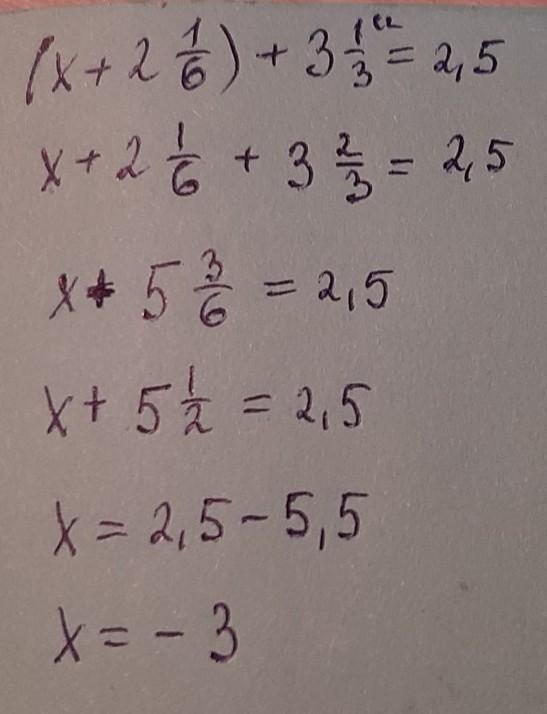 (x + 2 1/6) + 3 1/3 = 2,5
x + 2 1/6 + 3 2/3 = 2,5
x + 5 3/6 = 2,5
x + 5 1/2 = 2,5
x = 2,5 - 5,5
x = - 3